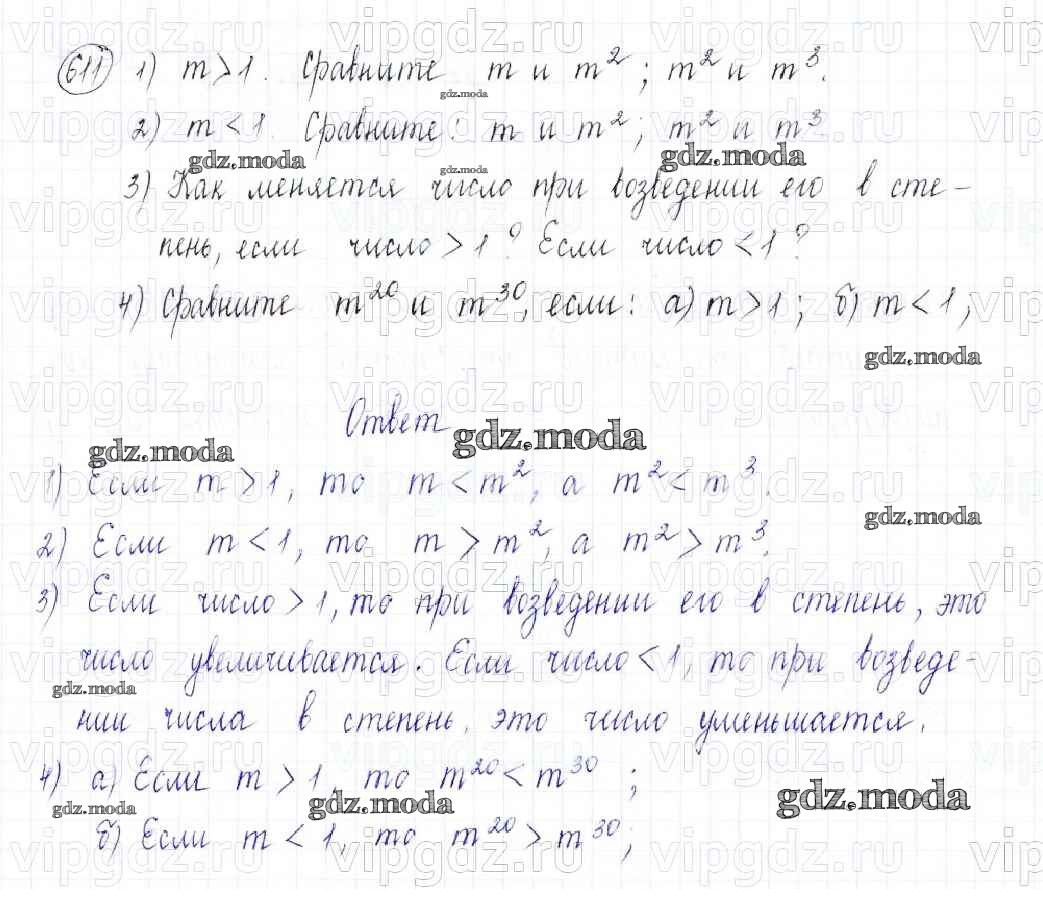 611 1) m > 1. Сравните m и m²; m² и m³.
2) m < 1. Сравните: m и m²; m² и m³.
3) Как меняется число при возведении его в сте-
пень, если число > 1? Если число < 1?
4) Сравните m²⁰ и m³⁰, если: а) m > 1; б) m < 1;
Ответ
1) Если m > 1, то m < m², а m² < m³.
2) Если m < 1, то m > m², а m² > m³.
3) Если число > 1, то при возведении его в степень, это
число увеличивается. Если число < 1, то при возведе-
нии числа в степень, это число уменьшается.
4) а) Если m > 1, то m²⁰ < m³⁰ ;
б) Если m < 1, то m²⁰ > m³⁰;
gdz.moda
vipgdz.ru